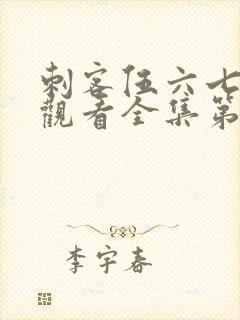 刺客伍六七
觀看全集第
李宇春